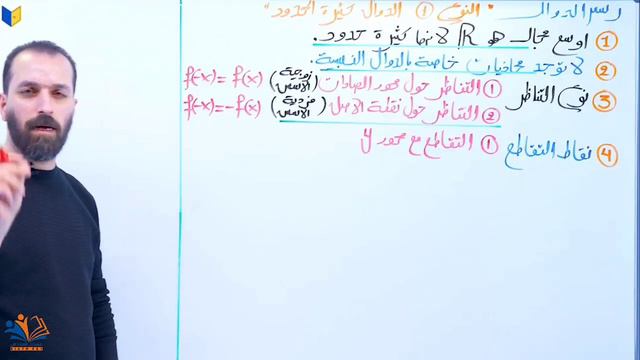 رسم الدوال "النوع ① الدوال كثيرة الحدود"
① اوسع مجال هو R لانها كثيرة حدود.
② لا توجد محاذيات خاصة بالدوال النسبية.
③ نوع التناظر ① التناظر حول محور الصادات (زوجية الاسس) f(-x) = f(x)
② التناظر حول نقطة الاصل (فردية الاسس) f(-x) = -f(x)
④ نقاط التقاطع ① التقاطع مع محور y